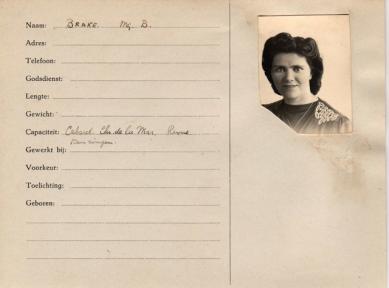 Naam: BRAKE. Mej. B.
Adres:
Telefoon:
Godsdienst:
Lengte:
Gewicht:
Capaciteit: Cabaret Chr. de la Mar. Revue
Gewerkt bij:
Voorkeur:
Toelichting:
Geboren: